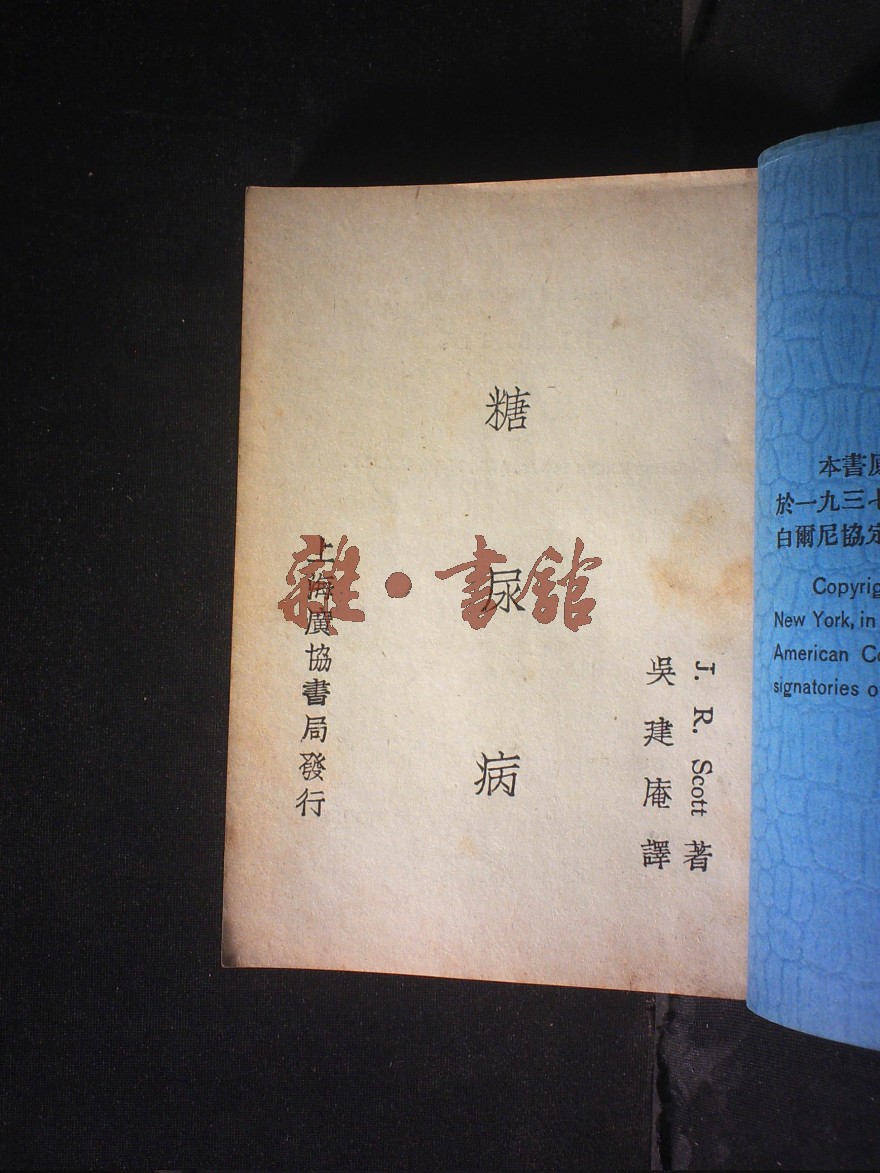 J. R. Scott 著
吳建庵譯
糖尿病
上海廣協書局發行
雜·書館
本書原
於一九三七
白爾尼協定
Copyrig
New York, in
American Co
signatories o